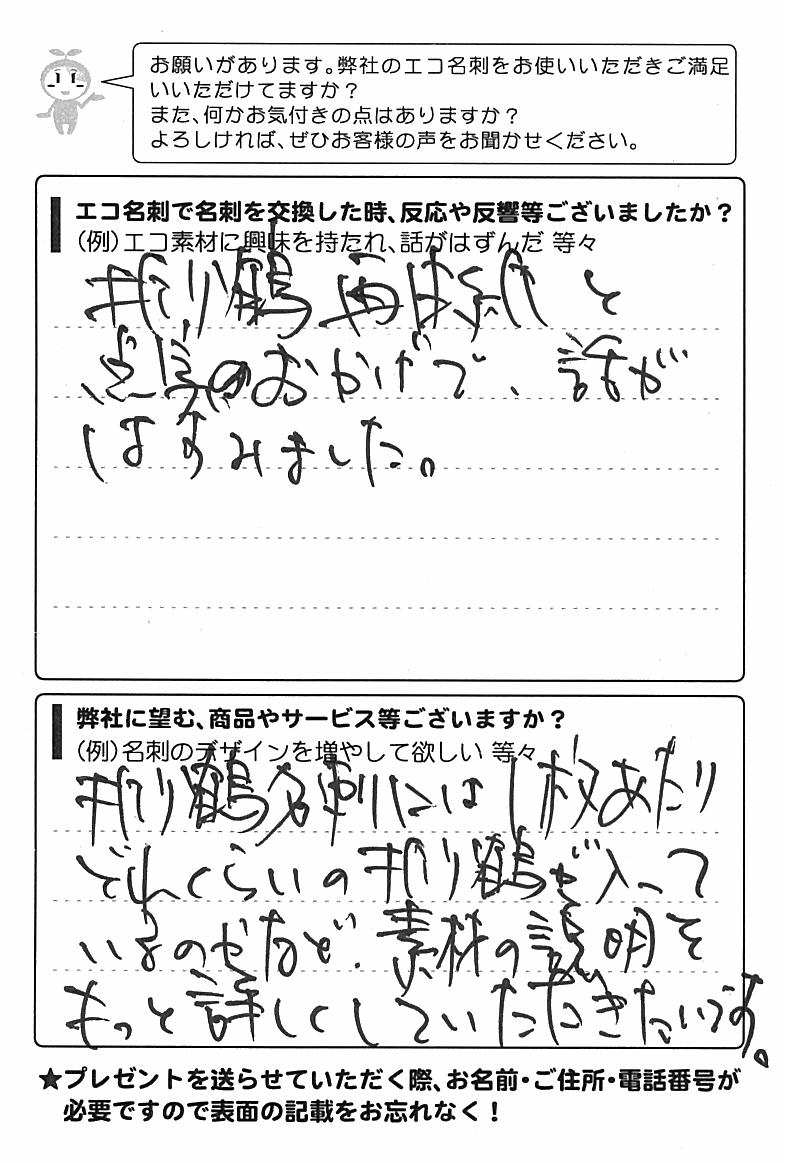 お願いがあります。弊社のエコ名刺をお使いいただきご満足
いいただけてますか？
また、何かお気付きの点はありますか？
よろしければ、ぜひお客様の声をお聞かせください。
エコ名刺で名刺を交換した時、反応や反響等ございましたか？
（例）エコ素材に興味を持たれ、話がはずんだ 等々
折り鶴再生紙と
点字のおかげで、話が
はずみました。
弊社に望む、商品やサービス等ございますか？
（例）名刺のデザインを増やして欲しい 等々
折り鶴名刺には1枚あたり
どれくらいの折り鶴が入って
いるのかなど、素材の説明を
もっと詳しくしていただきたいです。
★プレゼントを送らせていただく際、お名前・ご住所・電話番号が
必要ですので表面の記載をお忘れなく！